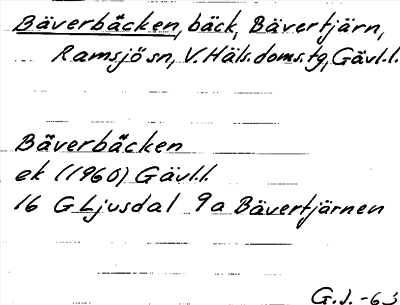 Bäverbäcken, bäck, Bävertjärn,
Ramsjö sn, V. Häls. doms. tg, Gävl.l.
Bäverbäcken
ek (1960) Gävl.l.
16 G Ljusdal 9a Bävertjärnen
G.J. -63